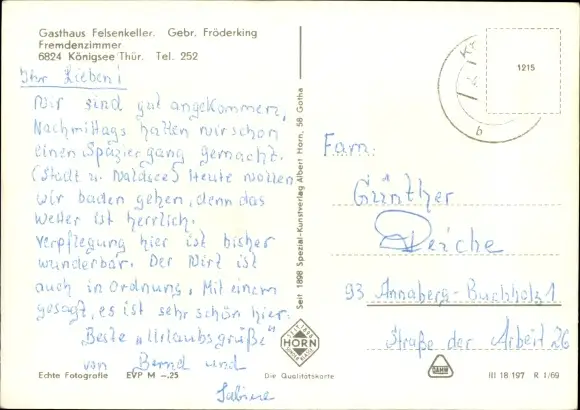 Gasthaus Felsenkeller. Gebr. Fröderking
Fremdenzimmer
6824 Königsee/Thür. Tel. 252
Ihr Lieben!
Wir sind gut angekommen,
Nachmittags hatten wir schon
einen Spaziergang gemacht.
(Stadt u. Waldsee) Heute wollen
wir baden gehen, denn das
Wetter ist herrlich.
Verpflegung hier ist bisher
wunderbar. Der Wirt ist
auch in Ordnung. Mit einem
gesagt, es ist sehr schön hier.
Beste "Urlaubsgrüße"
von Bernd und
Sabine
Echte Fotografie EVP M –.25
Seit 1898 Spezial-Kunstverlag Albert Horn, 58 Gotha
SEIT 1898
HORN
Die Qualitätskarte
1215
b
Fam.
Günther
Reiche
93 Annaberg-Buchholz 1
Straße der Arbeit 26
III 18 197 R 1/69